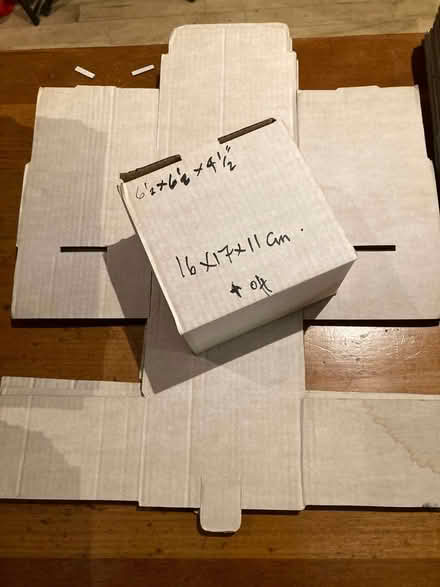 6½x6½ x 4½"
16 x 17 x 11 cm.